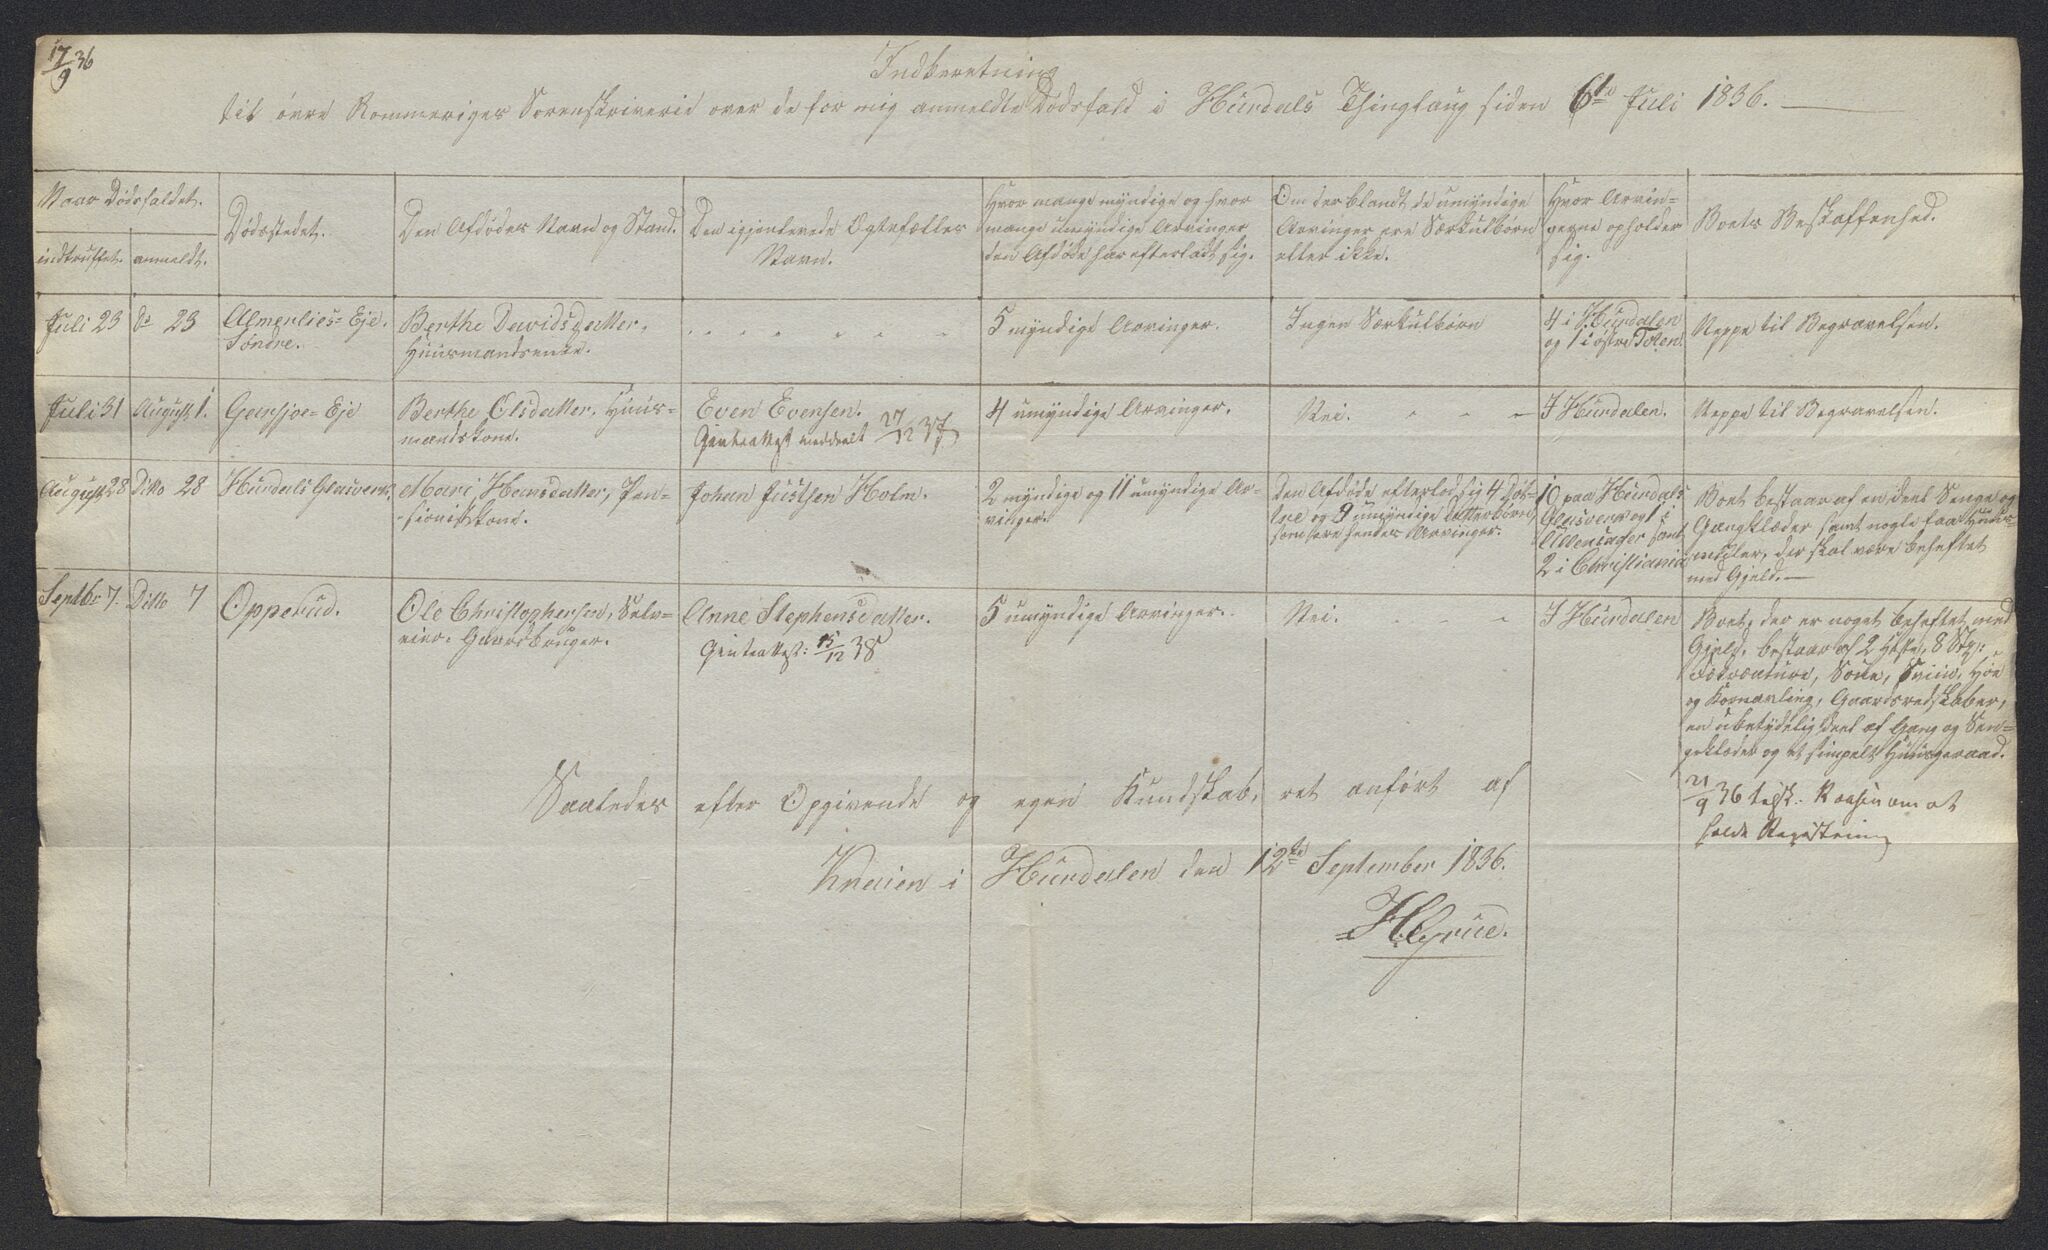 17/9 36
Indberetning
til övre Rommeriges Sorenskriverie over de for mig anmeldte Dødsfald i Hurdals Thinglaug siden 6te Juli 1836.
Naar Dødsfaldet.
indtruffet. anmeldt.
Dødsstedet.
Den Afdødes Navn og Stand.
Den igjenlevede Ægtefælles
Navn.
Hvor mange myndige og hvor
mange umyndige Arvinger
den Afdøde har efterladt sig.
Om der blandt de umyndige
Arvinger ere Særkulbørn
eller ikke.
Hvor Arvin=
gerne opholder
sig.
Boets Beskaffenhed.
Juli 23 do 23
Almerlies= Eje.
Søndre.
Berthe Davidsdatter,
Huusmandsenke.
5 myndige Arvinger.
Ingen Særkulbørn
4 i Hurdalen
og 1 i østre Toten.
Neppe til Begravelsen.
Juli 31 August 1.
Garsjøe= Eje
Berthe Olsdatter, Huus=
mandskone.
Even Evensen.
Gjenpart meddeelt 27/12 37
4 umyndige Arvinger.
Nei.
I Hurdalen.
Neppe til Begravelsen.
August 28 Ditto 28
Hurdals Glasværk.
Mari Hansdatter, Pen=
sionistkone.
Johan Justsen Holm.
2 myndige og 11 umyndige Ar=
vinger.
Den Afdøde efterlod sig 4 Døt=
tre og 9 umyndige Datterbørn,
som ere hendes Arvinger.
10 paa Hurdals
Glasværk og 1 i
Ullensager samt
2 i Christiania
Boet bestaar af en deel Senge og
Gangklæder samt nogle faa Huus=
midler, der skal være beheftet
med Gjeld.—
Septbr 7. Ditto 7
Opperud.
Ole Christophersen, Selv=
eier= Gaardbruger.
Anne Stephensdatter.
15/12 38
5 umyndige Arvinger.
Nei.
I Hurdalen
Boet, der er noget beheftet med
Gjeld, bestaar af 2 Heste, 8 Stk:
Fækreature, Soue, Sviin, Høe
og Kornavling, Gaardsredskaber,
en ubetydelig deel af Gang og Sen=
geklæder og et simpelt Huusgeraad.
21/9 36 tilsk. Roasin om at
holde Registrering
Saaledes efter Opgivende og egen Kundskab, ret anført af
Knaien i Hurdalen den 12te September 1836.
H Gruë.